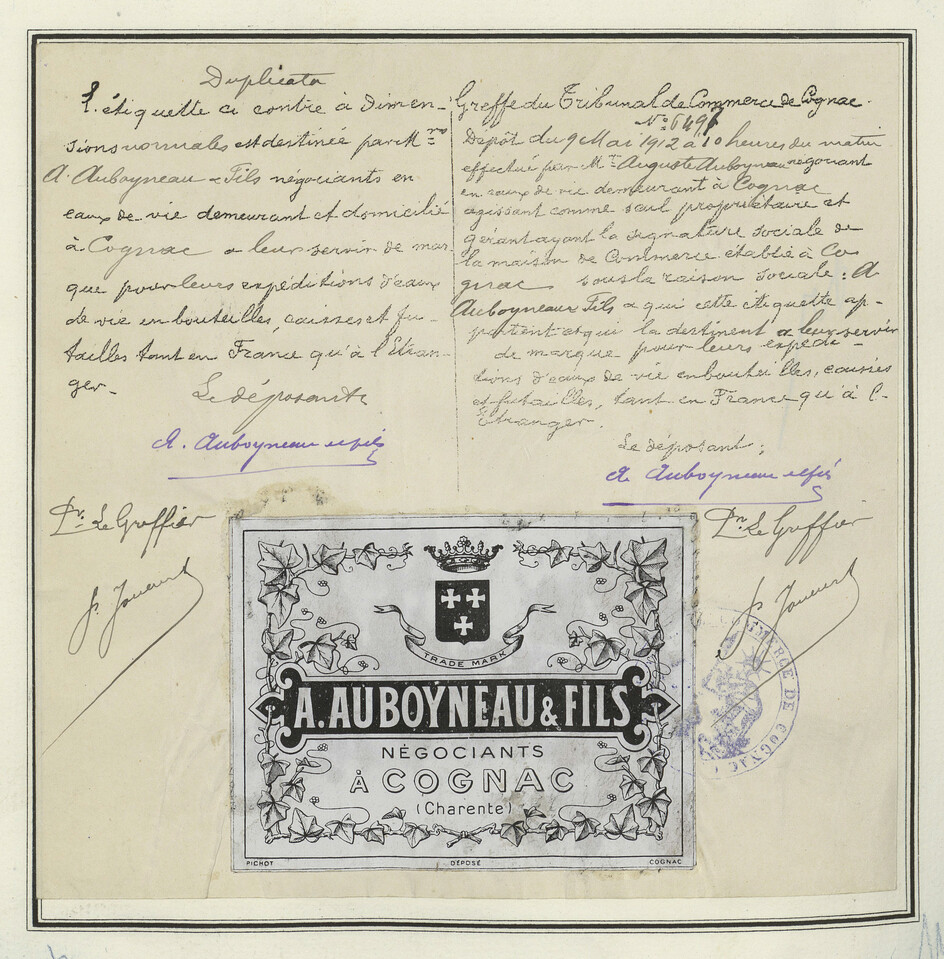 Duplicata
L'étiquette ci contre à dimen-
sions normales est destinée par Mrs
A. Auboyneau & Fils négociants en
eaux de vie demeurant et domicilié
à Cognac a leur servir de mar-
que pour leurs expéditions d'eaux
de vie en bouteilles, caisses et fu-
tailles tant en France qu'à l'Etran-
ger.
Le déposant
A. Auboyneau et fils
Pr. Le Greffier
Greffe du Tribunal de Commerce de Cognac.
No. 649
Dépôt du 9 Mai 1912 à 10 heures du matin
effectué par Mr. Auguste Auboyneau négociant
en eaux de vie demeurant à Cognac
agissant comme seul propriétaire et
gérant ayant la signature sociale de
la maison de Commerce établie à Co
gnac sous la raison sociale : A
Auboyneau & Fils a qui cette étiquette ap-
partient et qui la destinent a leur servir
de marque pour leurs expédi-
tions d'eaux de vie en bouteilles, caisses
et futailles, tant en France qu'à l'-
Etranger.
Le déposant,
A. Auboyneau et fils
Pr. Le Greffier
TRADE MARK
A. AUBOYNEAU & FILS
NÉGOCIANTS
À COGNAC
(Charente)
PICHOT DÉPOSÉ COGNAC
COMMERCE DE COGNAC